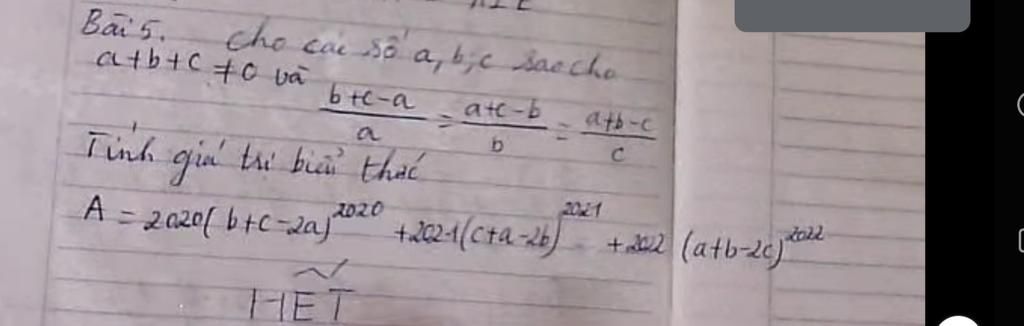 Bài 5. Cho các số a, b, c sao cho
a+b+c ≠ 0 và (b+c-a)/a = (a+c-b)/b = (a+b-c)/c
Tính giá trị biểu thức
A = 2020(b+c-2a)^2020 + 2021(c+a-2b)^2021 + 2022 (a+b-2c)^2022
HẾT